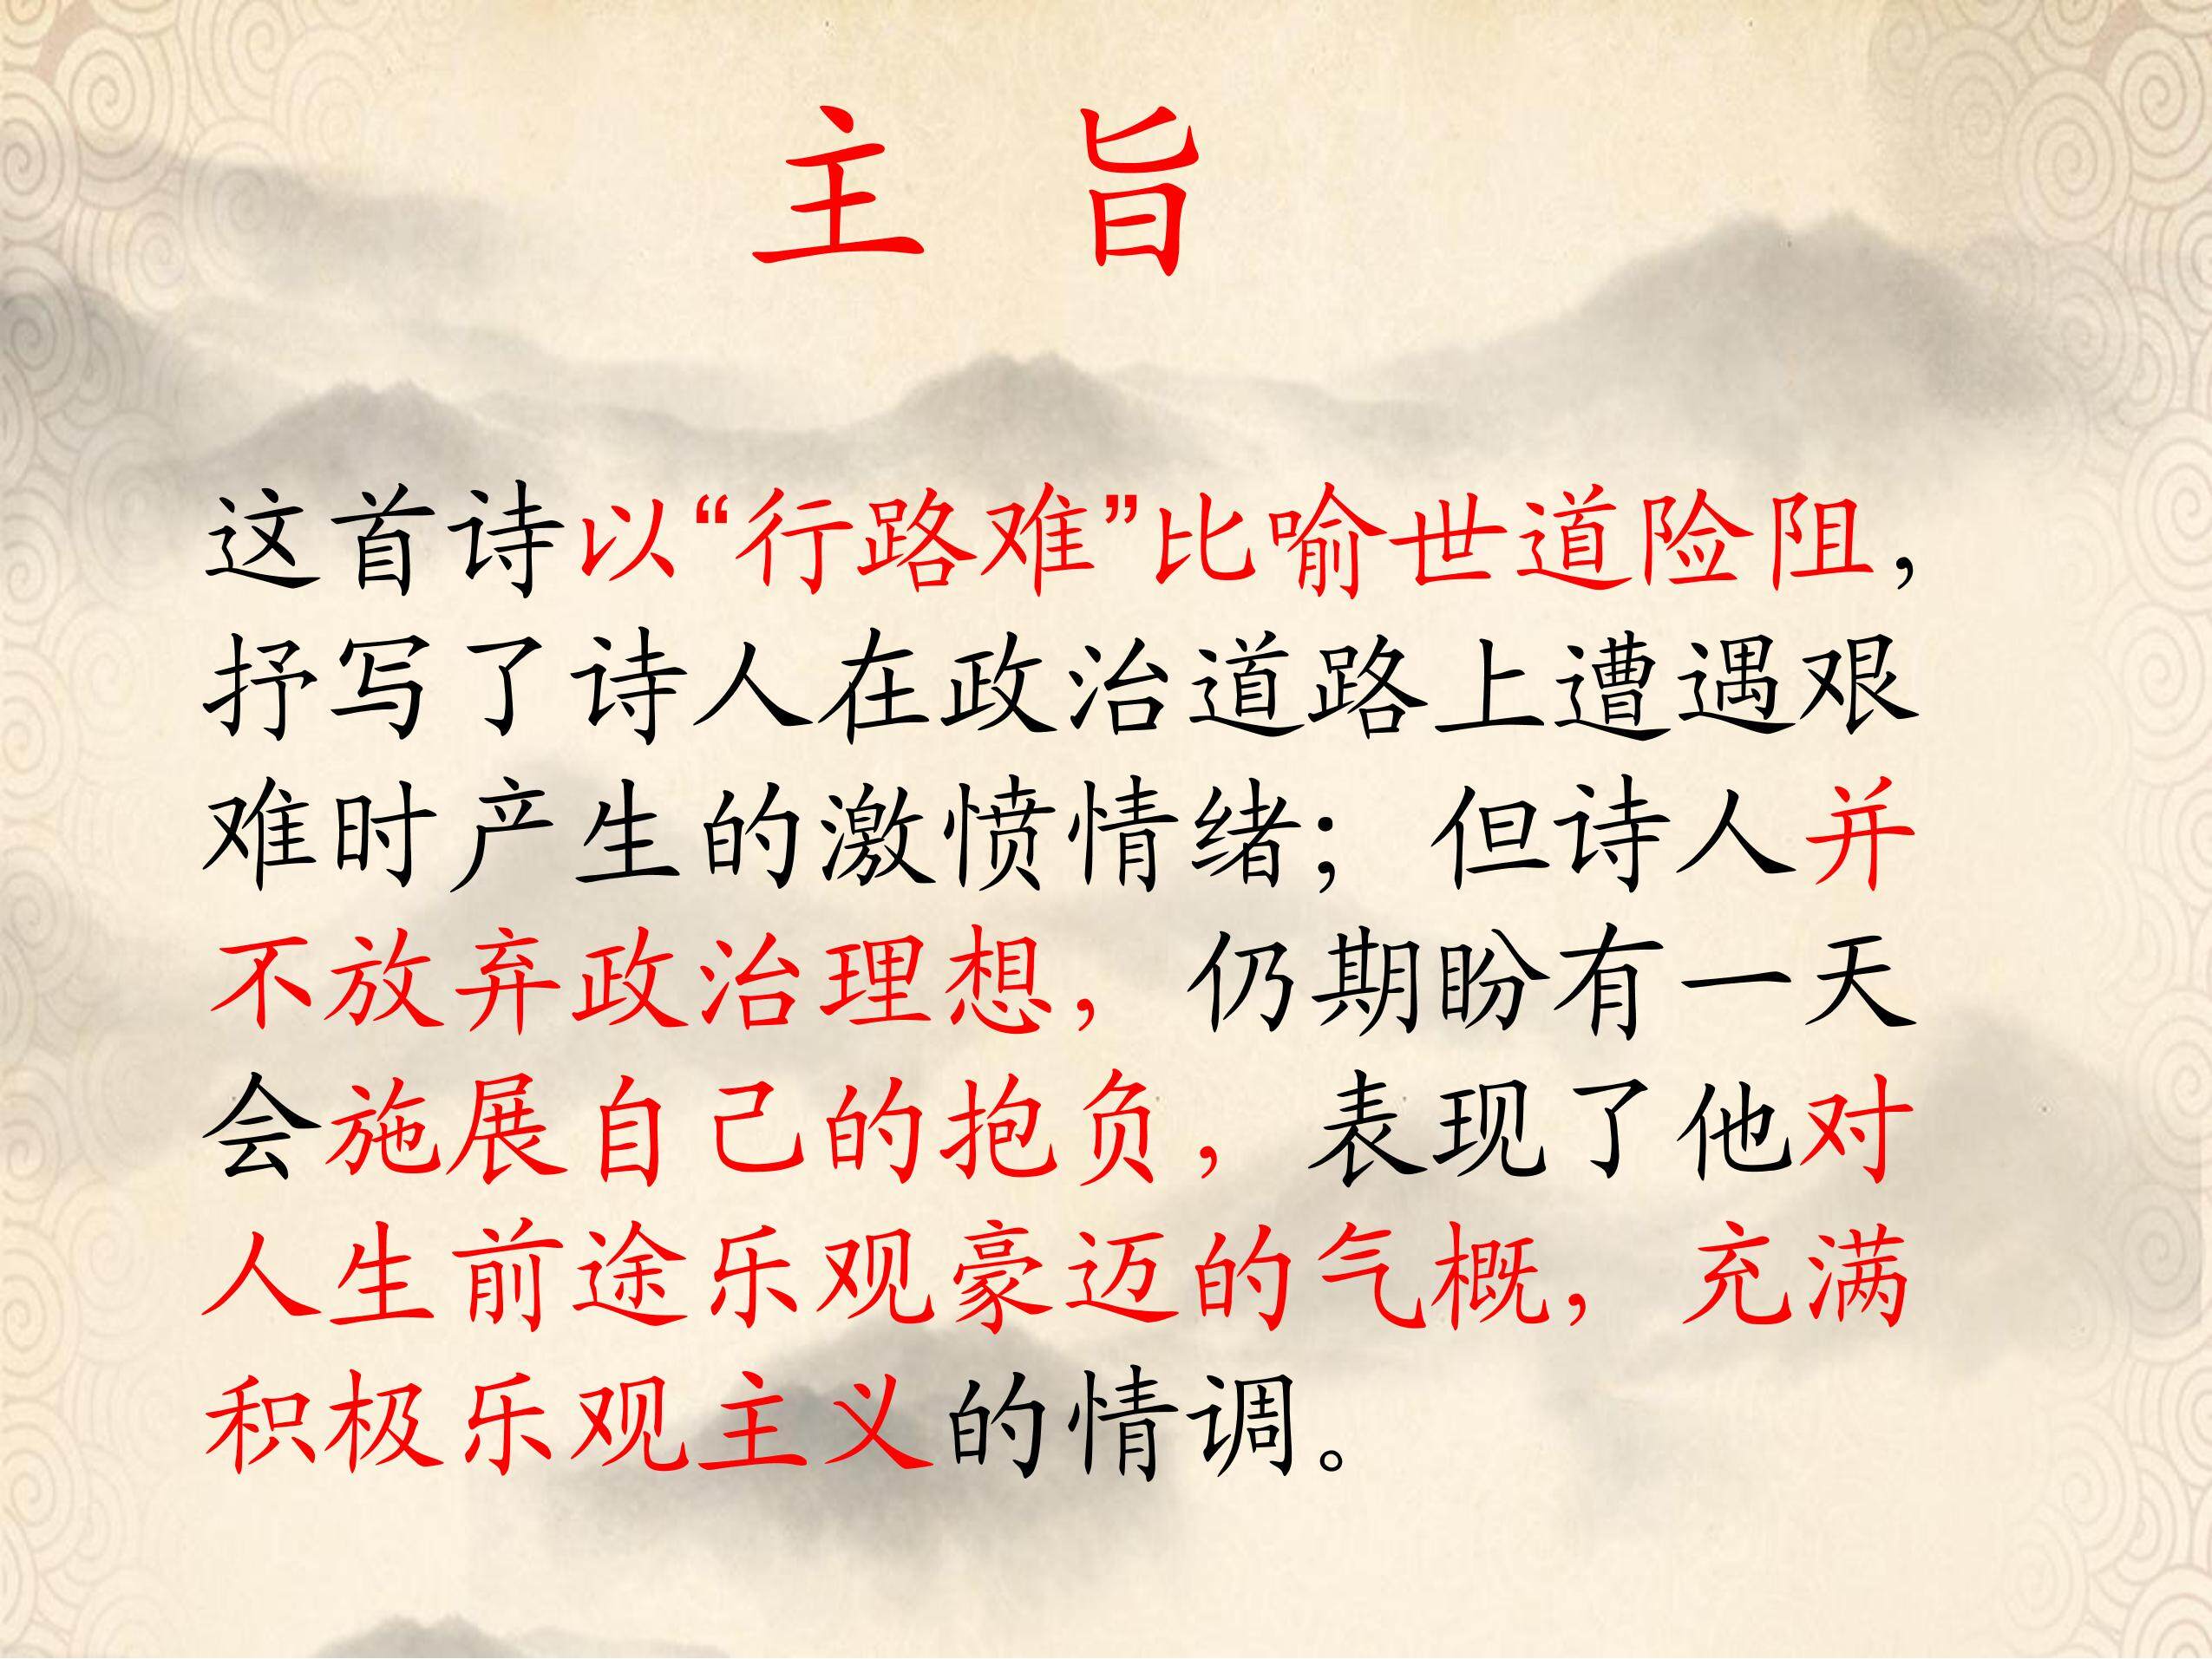 主 旨
这首诗以“行路难”比喻世道险阻，
抒写了诗人在政治道路上遭遇艰
难时产生的激愤情绪；但诗人并
不放弃政治理想，仍期盼有一天
会施展自己的抱负，表现了他对
人生前途乐观豪迈的气概，充满
积极乐观主义的情调。